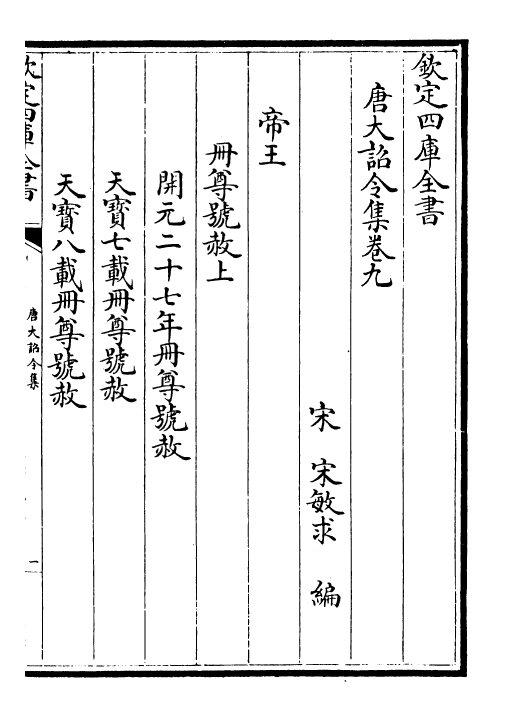 欽定四庫全書
唐大詔令集卷九
宋　宋敏求　編
帝王
冊尊號赦上
開元二十七年冊尊號赦
天寶七載冊尊號赦
天寶八載冊尊號赦
欽定四庫全書
唐大詔令集
一